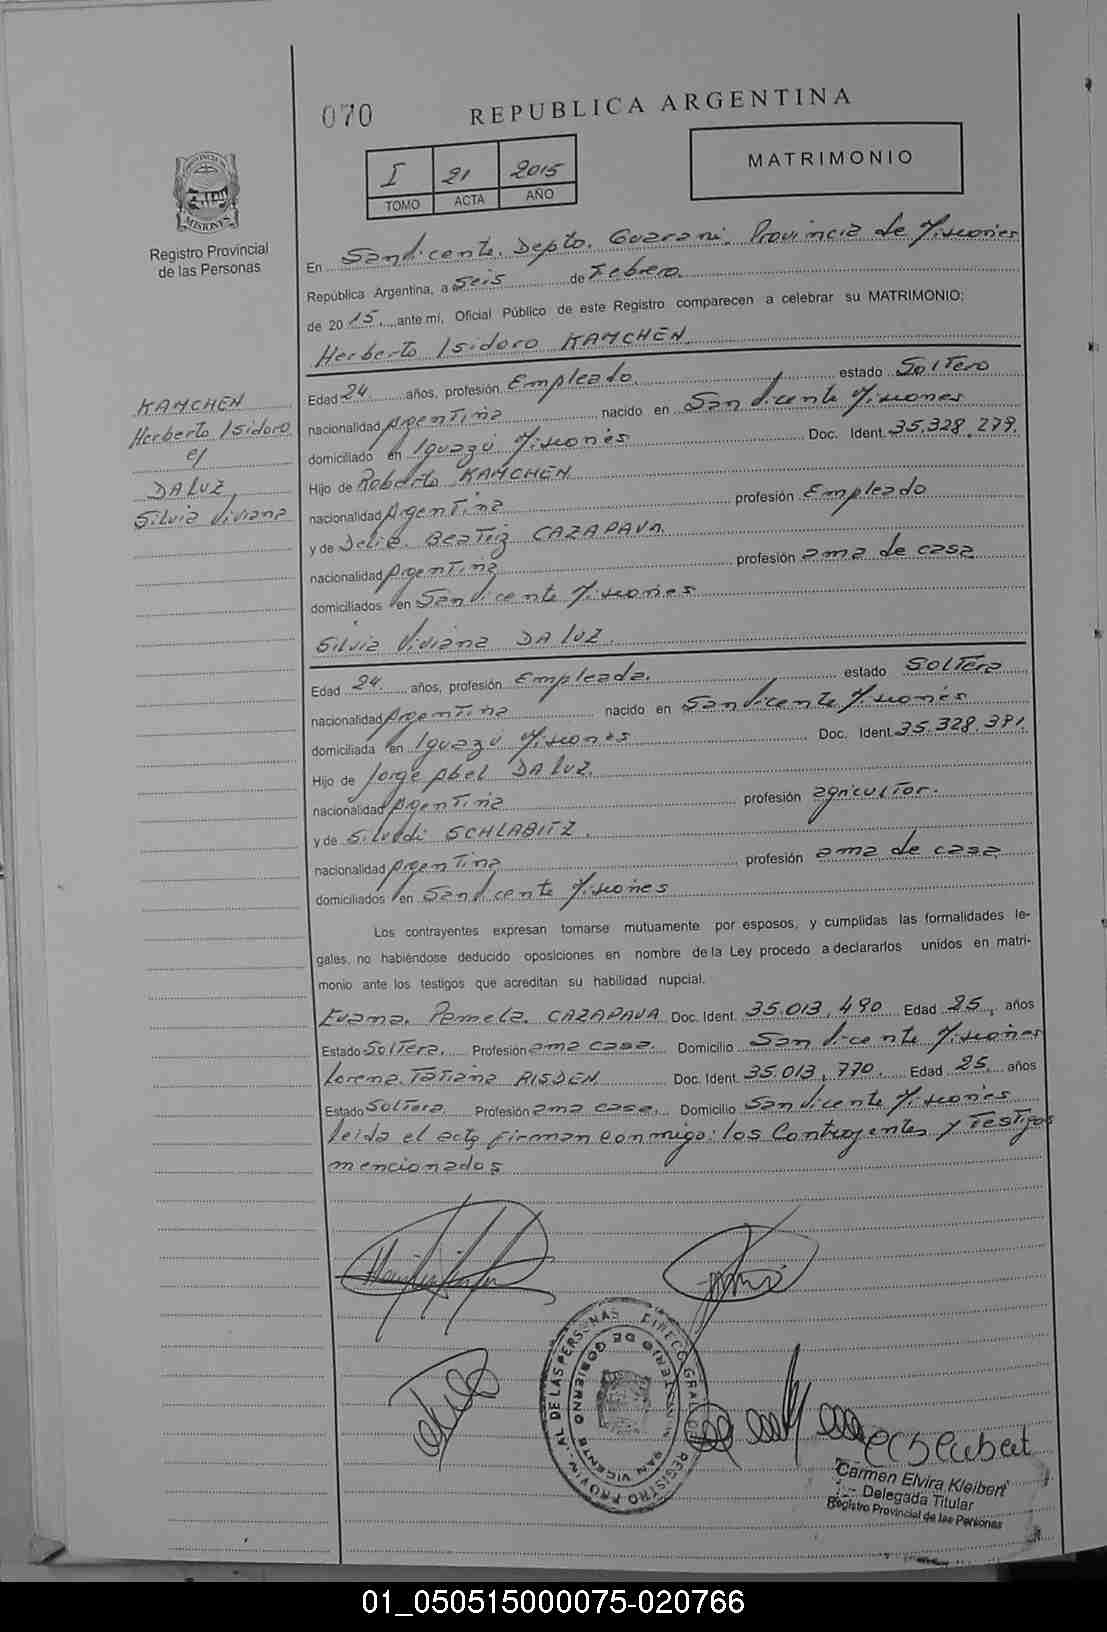 070
REPUBLICA ARGENTINA
I 21 2015
TOMO ACTA AÑO
MATRIMONIO
PROVINCIA DE MISIONES
Registro Provincial
de las Personas
En San Vicente. Depto. Guarani. Provincia de Misiones
República Argentina, a Seis de Febrero.
de 2015, ante mí, Oficial Público de este Registro comparecen a celebrar su MATRIMONIO:
Herberto Isidoro KAMCHEN
KAMCHEN
Herberto Isidoro
c/
DA LUZ
Silvia Viviana
Edad 24. años, profesión Empleado. estado Soltero
nacionalidad Argentina nacido en San Vicente Misiones
domiciliado en Iguazú Misiones Doc. Ident. 35.328.279.
Hijo de Roberto KAMCHEN
nacionalidad Argentina profesión Empleado
y de Delia. Beatriz CAZAPAVA.
nacionalidad Argentina profesión ama de casa
domiciliados en San Vicente Misiones
Silvia Viviana DA LUZ.
Edad 24. años, profesión Empleada. estado Soltera
nacionalidad Argentina nacido en San Vicente Misiones
domiciliada en Iguazú Misiones Doc. Ident. 35.328.381.
Hijo de Jorge Abel DA LUZ.
nacionalidad Argentina profesión agricultor.
y de SCHLABITZ.
nacionalidad Argentina profesión ama de casa
domiciliados en San Vicente Misiones
Los contrayentes expresan tomarse mutuamente por esposos, y cumplidas las formalidades le-
gales, no habiéndose deducido oposiciones en nombre de la Ley procedo a declararlos unidos en matri-
monio ante los testigos que acreditan su habilidad nupcial.
Pamela. CAZAPAVA Doc. Ident. 35.013.490 Edad 25, años
Estado Soltera. Profesión ama casa. Domicilio San Vicente Misiones
Lorena Tatiana Doc. Ident. 35.013.770. Edad 25. años
Estado Soltera. Profesión ama casa. Domicilio San Vicente Misiones
leida el acta firman conmigo: los Contrayentes y Testigos
mencionados
DIRECC. GRAL. DEL REGISTRO PROVINCIAL DE LAS PERSONAS
MINISTERIO DE GOBIERNO
SAN VICENTE
Carmen Elvira Kleibert
Delegada Titular
Registro Provincial de las Personas
01_050515000075-020766